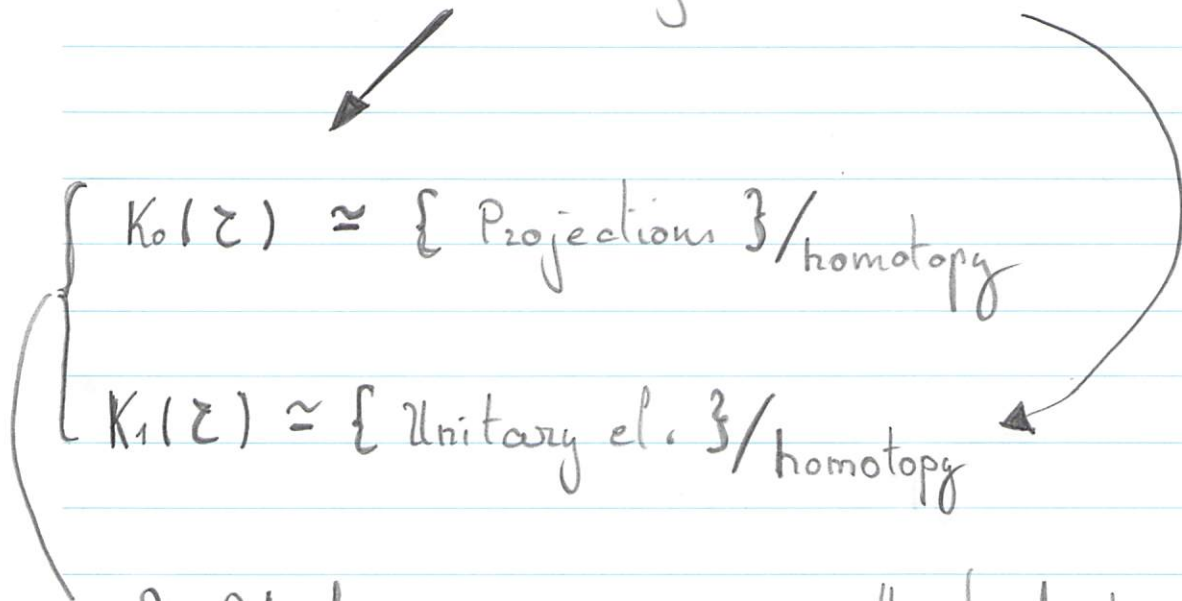 K₀(τ) ≃ { Projections }/homotopy
K₁(τ) ≃ { Unitary el. }/homotopy